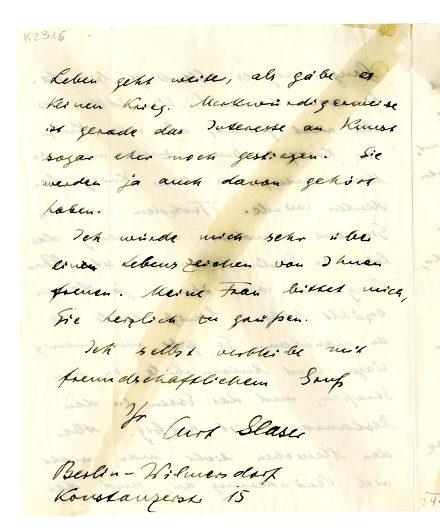 K2316
Leben geht weiter, als gäbe es
keinen Krieg. Merkwürdigerweise
ist gerade das Interesse an Kunst
sogar eher noch gestiegen. Sie
werden ja auch davon gehört
haben.
Ich würde mich sehr über
einen Lebenszeichen von Ihnen
freuen. Meine Frau bittet mich,
Sie herzlich zu grüßen.
Ich selbst verbleibe mit
freundschaftlichem Gruß
Ihr
Curt Glaser
Berlin-Wilmersdorf
Konstanzerstr 15